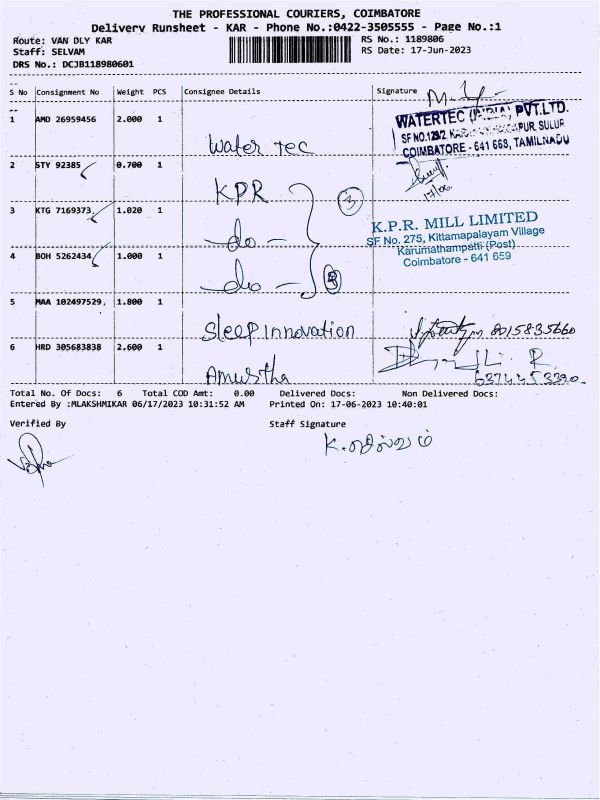 THE PROFESSIONAL COURIERS, COIMBATORE
Delivery Runsheet - KAR - Phone No.:0422-3505555 - Page No.:1
Route: VAN DLY KAR
RS No.: 1189806
Staff: SELVAM
RS Date: 17-Jun-2023
DRS No.: DCJB118980601
S No Consignment No Weight PCS Consignee Details Signature
1 AMD 26959456 2.000 1 Water Tec
WATERTEC (INDIA) PVT.LTD.
COIMBATORE - 641 668, TAMILNADU
17/06
2 STY 92385 0.700 1 KPR
3
3 KTG 7169373 1.020 1 -do-
K.P.R. MILL LIMITED
SF No. 275, Kittamapalayam Village
Karumathampatti (Post)
Coimbatore - 641 659
4 BOH 5262434 1.000 1 -do-
5 MAA 102497529, 1.800 1 Sleep Innovation
8015835660
6 HRD 305683838 2.600 1
Total No. Of Docs: 6 Total COD Amt: 0.00 Delivered Docs: Non Delivered Docs:
Entered By :MLAKSHMIKAR 06/17/2023 10:31:52 AM Printed On: 17-06-2023 10:40:01
Verified By Staff Signature
K. செல்வம்